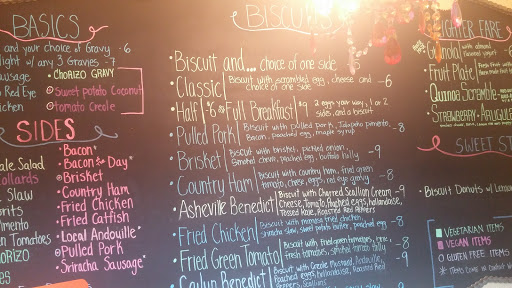 BASICS
and your choice of Gravy -6
light w/ any 3 Gravies -7
Sausage
Red Eye
chicken
• CHORIZO GRAVY
Sweet potato Coconut
Tomato Creole
SIDES
ale Salad
Collards
Slaw
Grits
Pimento
en Tomatoes
CHORIZO
• Bacon*
• Bacon of the Day*
Brisket
• Country Ham
• Fried Chicken
• Fried Catfish
• Local Andouille*
Pulled Pork
• Sriracha Sausage*
BISCUITS
• Biscuit and... choice of one side
• Classic Biscuit with scrambled egg, cheese and choice of one side -6
• Half $6 or Full Breakfast $9 2 eggs your way, 1 or 2 sides, and a biscuit
• Pulled Pork Biscuit with pulled pork, Jalapeño pimento, Bacon, poached egg, maple syrup -8
• Brisket Biscuit with brisket, pickled onion, Smoked cheese, poached egg, buffalo holly -9
• Country Ham Biscuit with country ham, fried green tomato, cheese, eggs, red eye gravy -8
Asheville Benedict Biscuit with Charred Scallion Cream Cheese, Tomato, Poached eggs, hollandaise, Tossed Kale, Roasted Red Peppers -9
• Fried Chicken Biscuit with mango fried chicken, sriracha slaw, sweet potato butter, poached egg -8
• Fried Green Tomato Biscuit with fried green tomatoes, brie, fresh tomatoes, smoked tomato holly -8
Caylyn Benedict Biscuit with Creole Mustard, Andouille, Poached eggs, hollandaise, Roasted Red Peppers, Scallions
LIGHTER FARE
• Granola with almond flavored yogurt
• Fruit Plate Fresh Fruit
• Quinoa Scramble
• STRAWBERRY-ARUGULA
SWEET ST
• Biscuit Donuts w/ Lemon
VEGETARIAN ITEMS
VEGAN ITEMS
GLUTEN FREE ITEMS
* Items Come in Contact